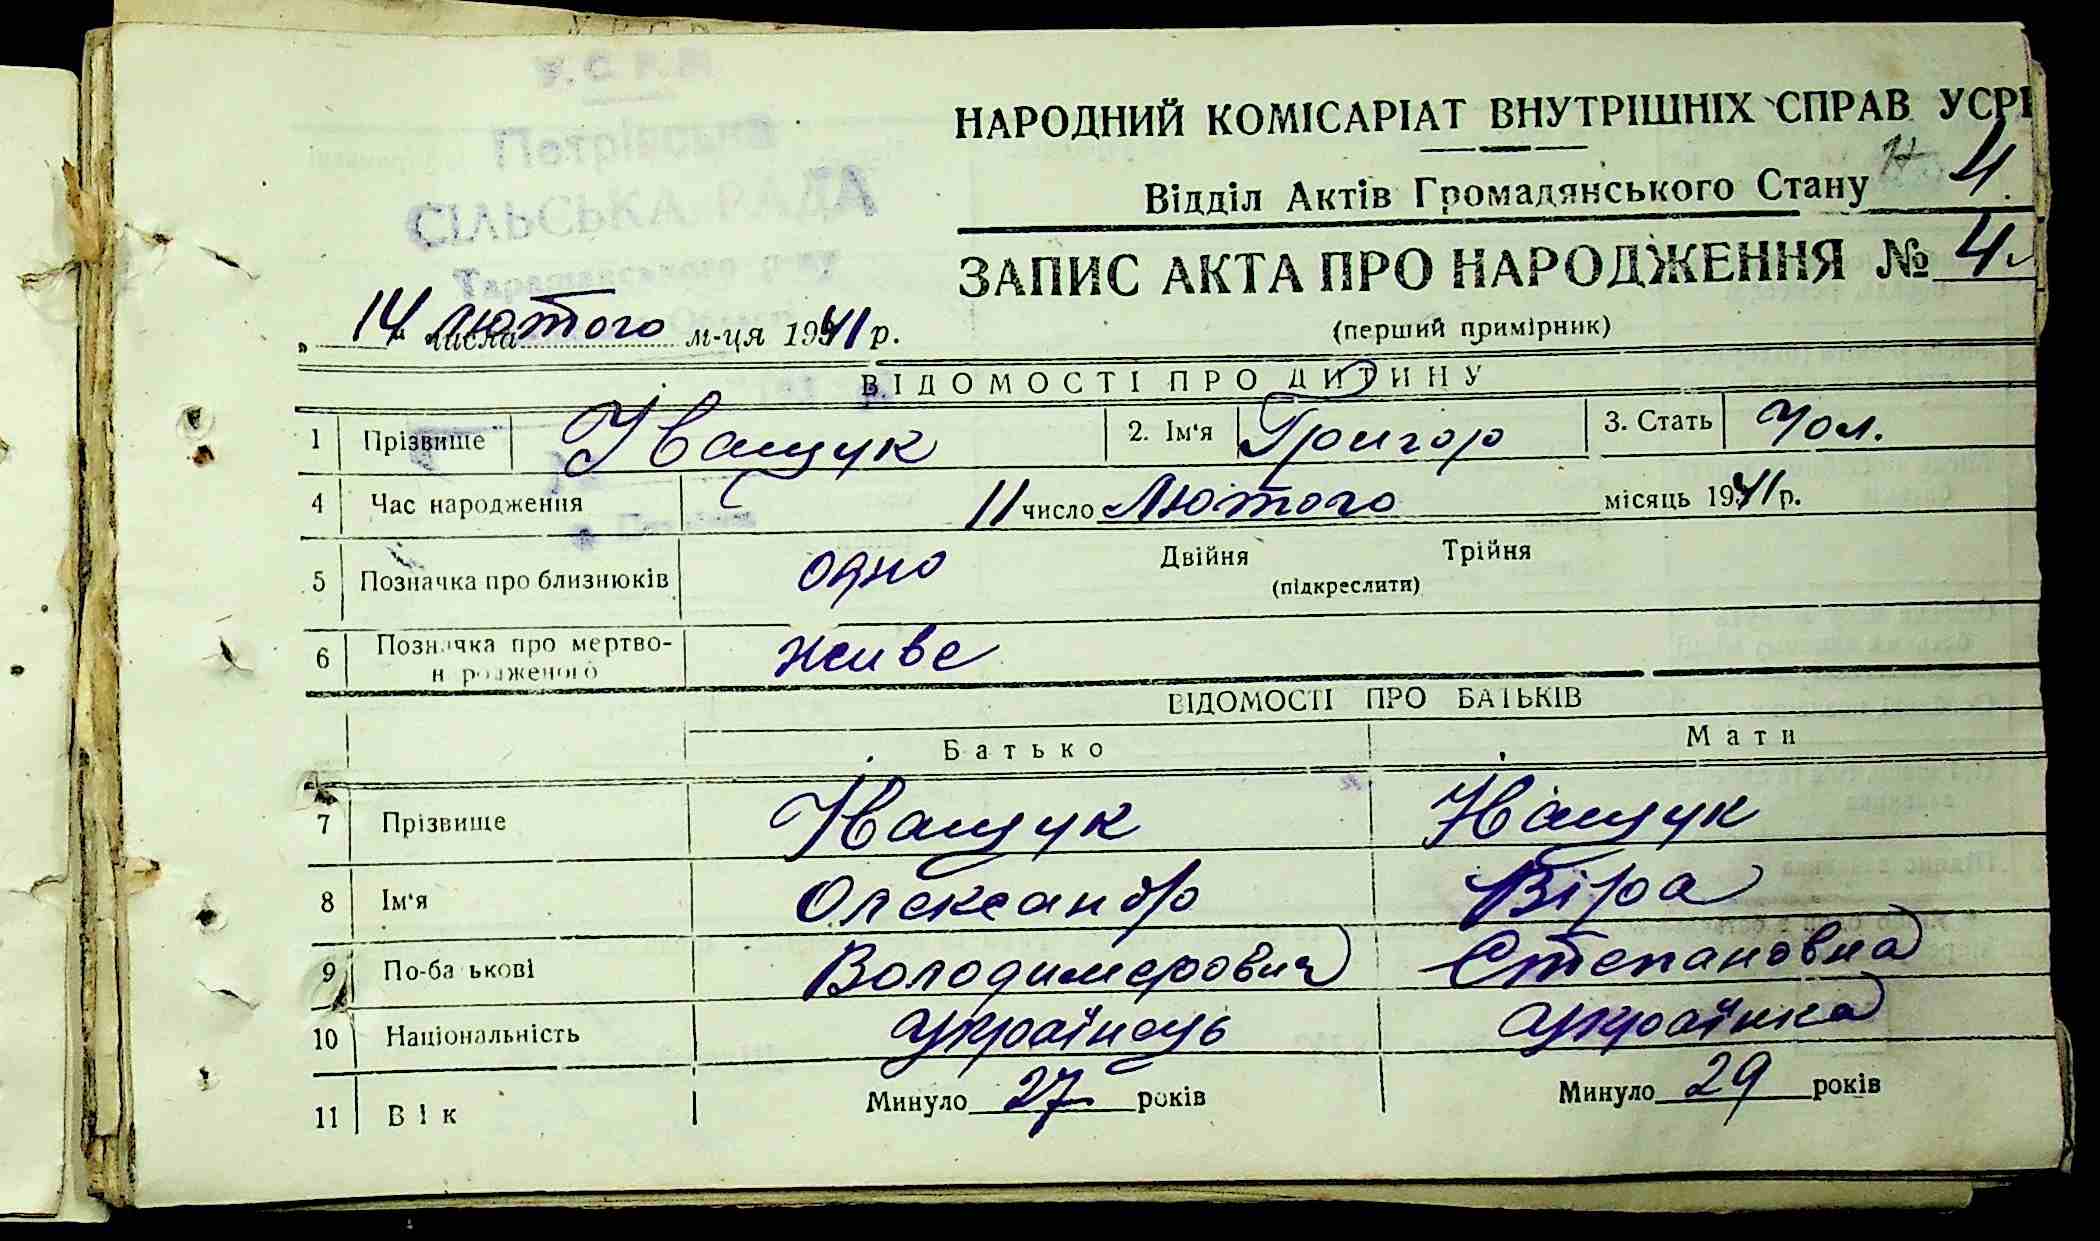 У.С.Р.Р.
Петрівська
СІЛЬСЬКА РАДА
Таращанського р-ну
НАРОДНИЙ КОМІСАРІАТ ВНУТРІШНІХ СПРАВ УСРР
Відділ Актів Громадянського Стану 4.
ЗАПИС АКТА ПРО НАРОДЖЕННЯ № 4.
(перший примірник)
„ 14 “ числа лютого м-ця 1941 р.
ВІДОМОСТІ ПРО ДИТИНУ
1 Прізвище Іващук 2. Ім'я Григор 3. Стать Чол.
4 Час народження 11 число Лютого місяць 1941 р.
5 Позначка про близнюків одно Двійня Трійня
(підкреслити)
6 Позначка про мертво- живе
н родженого
ВІДОМОСТІ ПРО БАТЬКІВ
Батько Мати
7 Прізвище Іващук Іващук
8 Ім'я Олександр Віра
9 По-ба ькові Володимерович Степановна
10 Національність українець українка
11 Вік Минуло 27 років Минуло 29 років